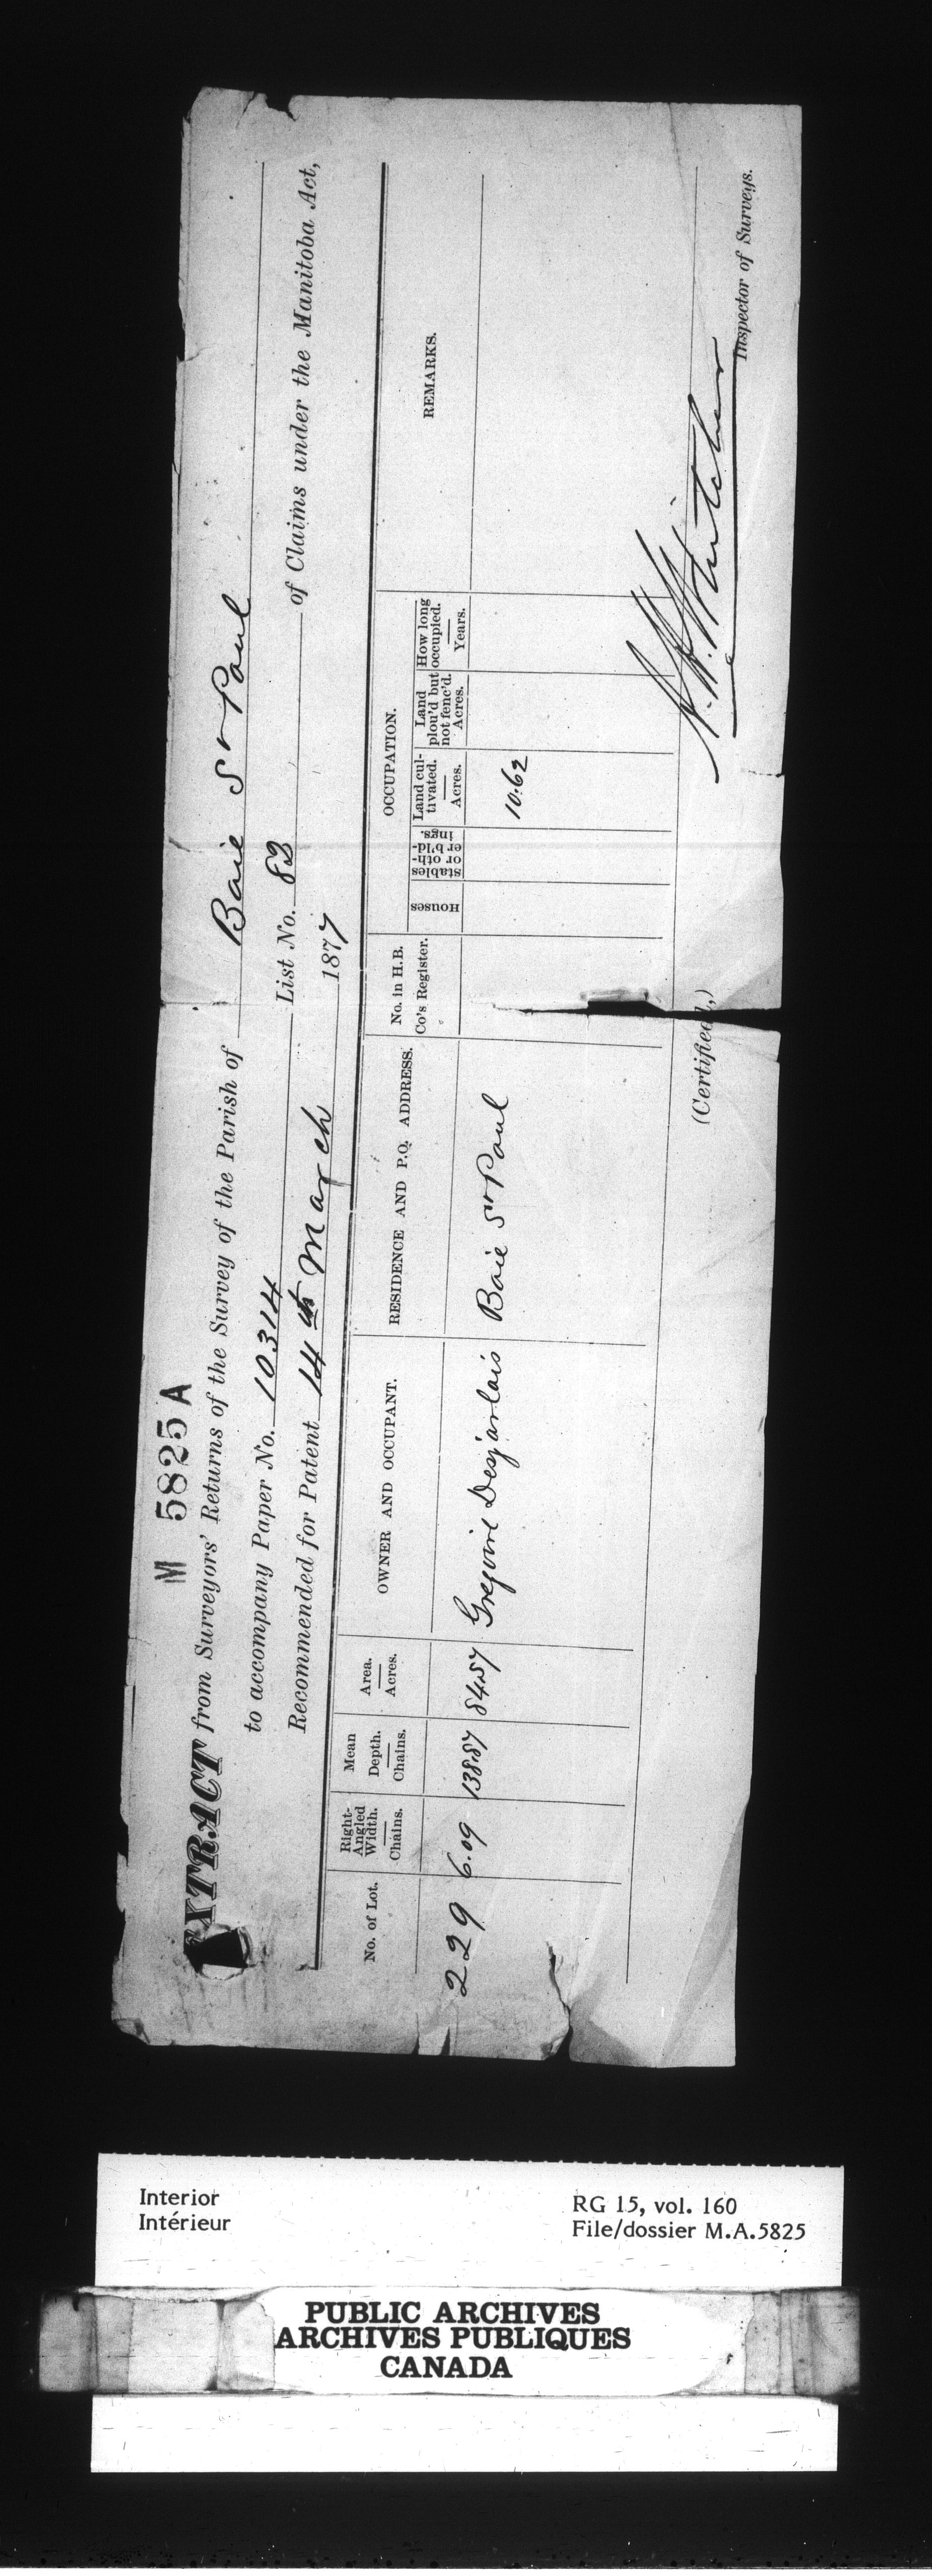 M 5825 A
EXTRACT from Surveyors' Returns of the Survey of the Parish of Baie St Paul
to accompany Paper No. 10314 List No. 83 of Claims under the Manitoba Act,
Recommended for Patent 14th March 1877
No. of Lot.
Right-Angled Width. — Chains.
Mean Depth. — Chains.
Area. — Acres.
OWNER AND OCCUPANT.
RESIDENCE AND P.O. ADDRESS.
No. in H.B. Co's Register.
OCCUPATION.
Houses
stables or oth-er b'ld-ings.
Land cul-tivated. — Acres.
Land plou'd but not fenc'd. Acres.
How long occupied. — Years.
REMARKS.
229 6.09 138.87 84.57 Gregoire Desjarlais Baie St Paul 10.62
(Certified,)
Inspector of Surveys.
Interior
Intérieur
RG 15, vol. 160
File/dossier M.A.5825
PUBLIC ARCHIVES
ARCHIVES PUBLIQUES
CANADA